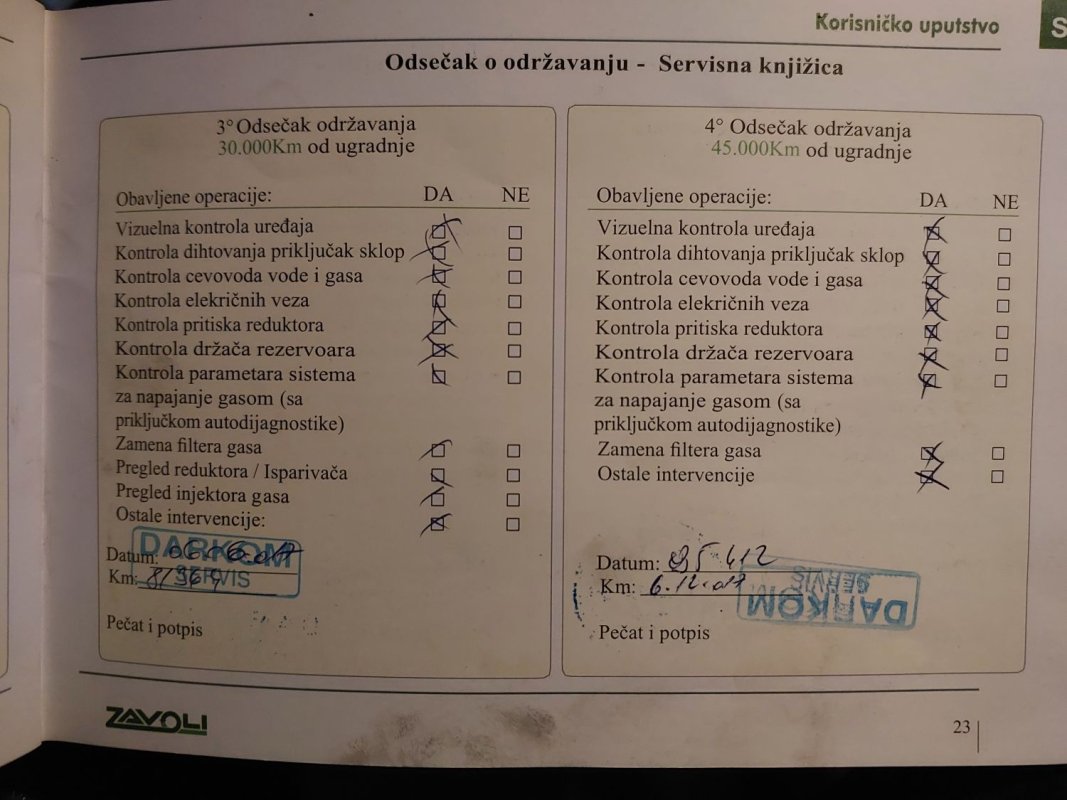 Korisničko uputstvo
S
Odsečak o održavanju - Servisna knjižica
3° Odsečak održavanja
30.000Km od ugradnje
Obavljene operacije: DA NE
Vizuelna kontrola uređaja
Kontrola dihtovanja priključak sklop
Kontrola cevovoda vode i gasa
Kontrola elekričnih veza
Kontrola pritiska reduktora
Kontrola držača rezervoara
Kontrola parametara sistema
za napajanje gasom (sa
priključkom autodijagnostike)
Zamena filtera gasa
Pregled reduktora / Isparivača
Pregled injektora gasa
Ostale intervencije:
Datum:
Km:
DARKOM
SERVIS
Pečat i potpis
4° Odsečak održavanja
45.000Km od ugradnje
Obavljene operacije: DA NE
Vizuelna kontrola uređaja
Kontrola dihtovanja priključak sklop
Kontrola cevovoda vode i gasa
Kontrola elekričnih veza
Kontrola pritiska reduktora
Kontrola držača rezervoara
Kontrola parametara sistema
za napajanje gasom (sa
priključkom autodijagnostike)
Zamena filtera gasa
Ostale intervencije
Datum: 95 412
Km: 6.12.017
DARKOM
SERVIS
Pečat i potpis
ZAVOLI
23